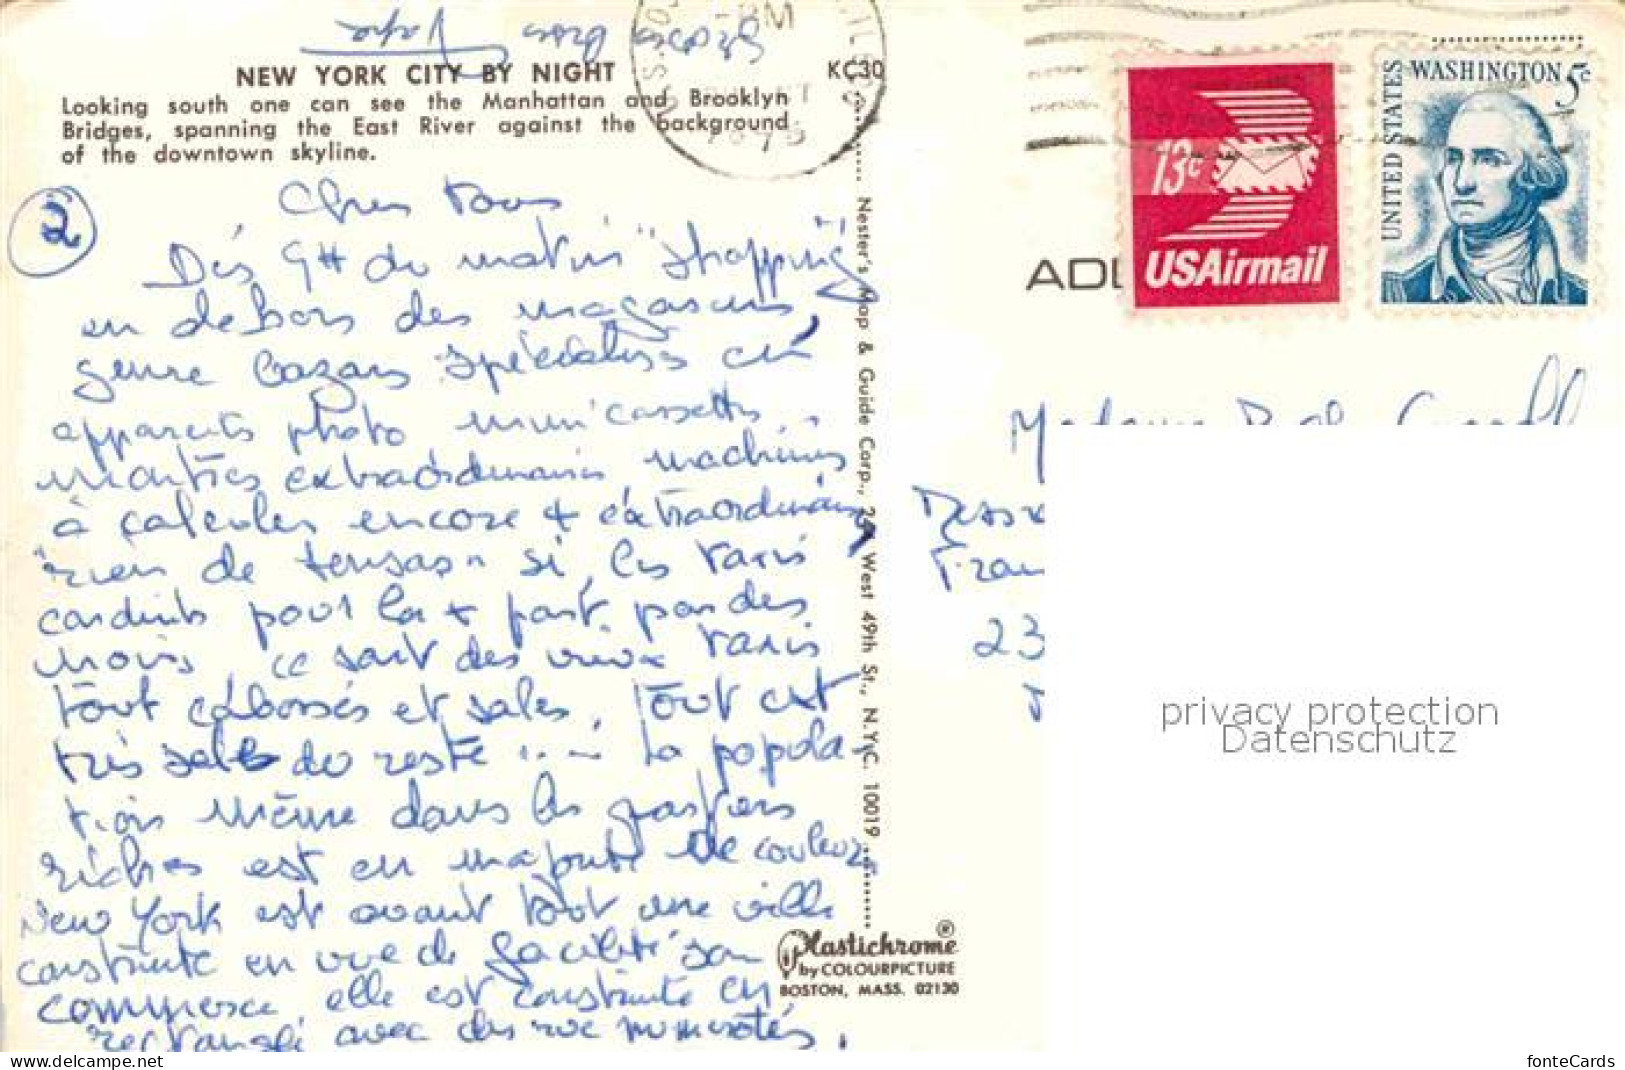 Gros Bises Papa
NEW YORK CITY BY NIGHT
KC30
Looking south one can see the Manhattan and Brooklyn
Bridges, spanning the East River against the background
of the downtown skyline.
PM
13c
USAirmail
UNITED STATES
WASHINGTON 5c
2
Chers Tous
Dès 9H du matin "shopping"
en dehors des magasins,
genre bazars spécialisés en
appareils photo mini cassettes,
montres extraordinaires machines
à calculer encore + extraordinaires
rien de sensas" si les taxis
conduits pour la + part par des
noirs ce sont des vieux taxis
tout cabossés et sales, Tout est
très sale du reste .. — la popula-
tion même dans les quartiers
riches est en majorité de couleur
New York est avant tout une ville
construite en vue de faciliter son
commerce, elle est construite en
rectangle avec des rue numérotés,
Nester's Map & Guide Corp., West 49th St., N.Y.C. 10019
Plastichrome®
by COLOURPICTURE
BOSTON, MASS. 02130
Madame
23
privacy protection
Datenschutz
fonteCards